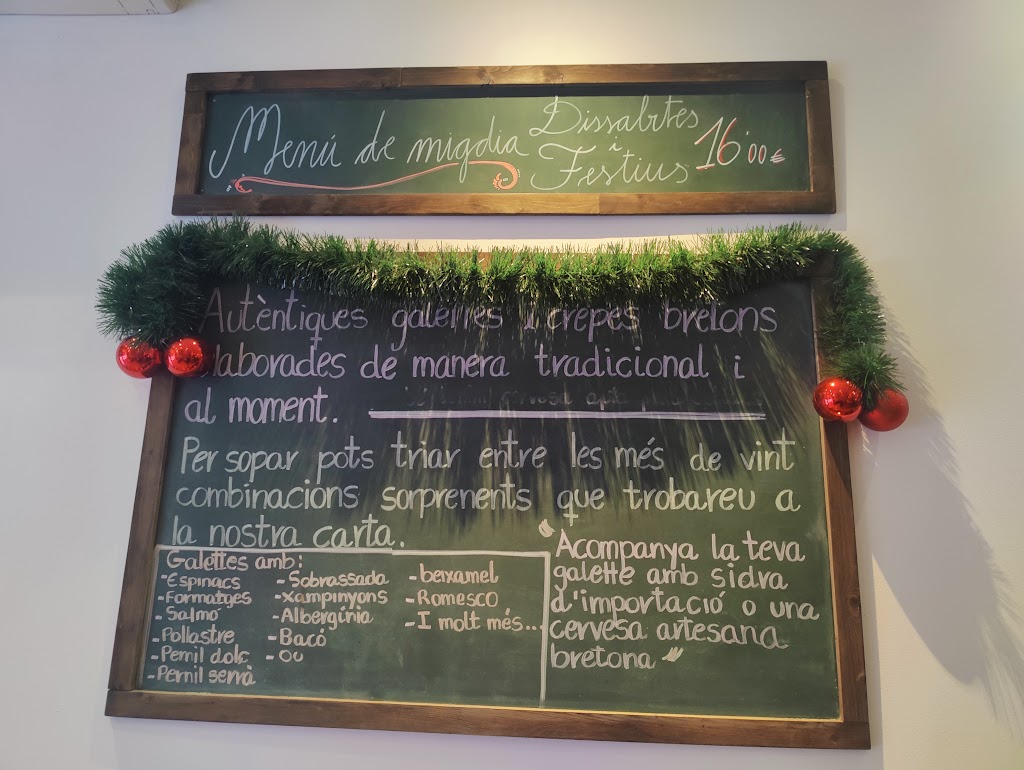 Menú de migdia Dissabtes
i
Festius 16'00€
Autèntiques galettes i crepes bretons
elaborades de manera tradicional i
al moment.
Per sopar pots triar entre les més de vint
combinacions sorprenents que trobareu a
la nostra carta.
Galettes amb:
-Espinacs
-Formatges
-Salmó
-Pollastre
-Pernil dolç
-Pernil serrà
-Sobrassada
-Xampinyons
-Albergínia
-Bacó
-Ou
-beixamel
-Romesco
-I molt més...
"Acompanya la teva
galette amb sidra
d'importació o una
cervesa artesana
bretona"